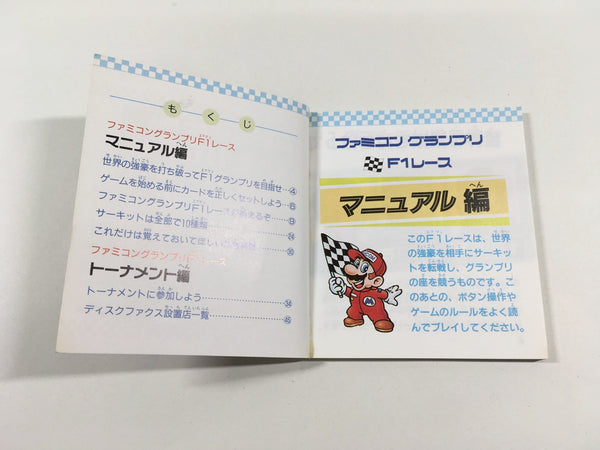 もくじ
ファミコングランプリF1レース
マニュアル編
世界の強豪を打ち破ってF1グランプリを目指せ…④
ゲームを始める前にカードを正しくセットしよう…⑮
ファミコングランプリF1レース
サーキットは全部で10種類
これだけは覚えておいて欲しい
ファミコングランプリF1レース
トーナメント編
トーナメントに参加しよう
ディスクファクス設置店一覧
ファミコン グランプリ
F1レース
マニュアル編
このF1レースは、世界
の強豪を相手にサーキッ
トを転戦し、グランプリ
の座を競うものです。こ
のあとの、ボタン操作や
ゲームのルールをよく読
んでプレイしてください。